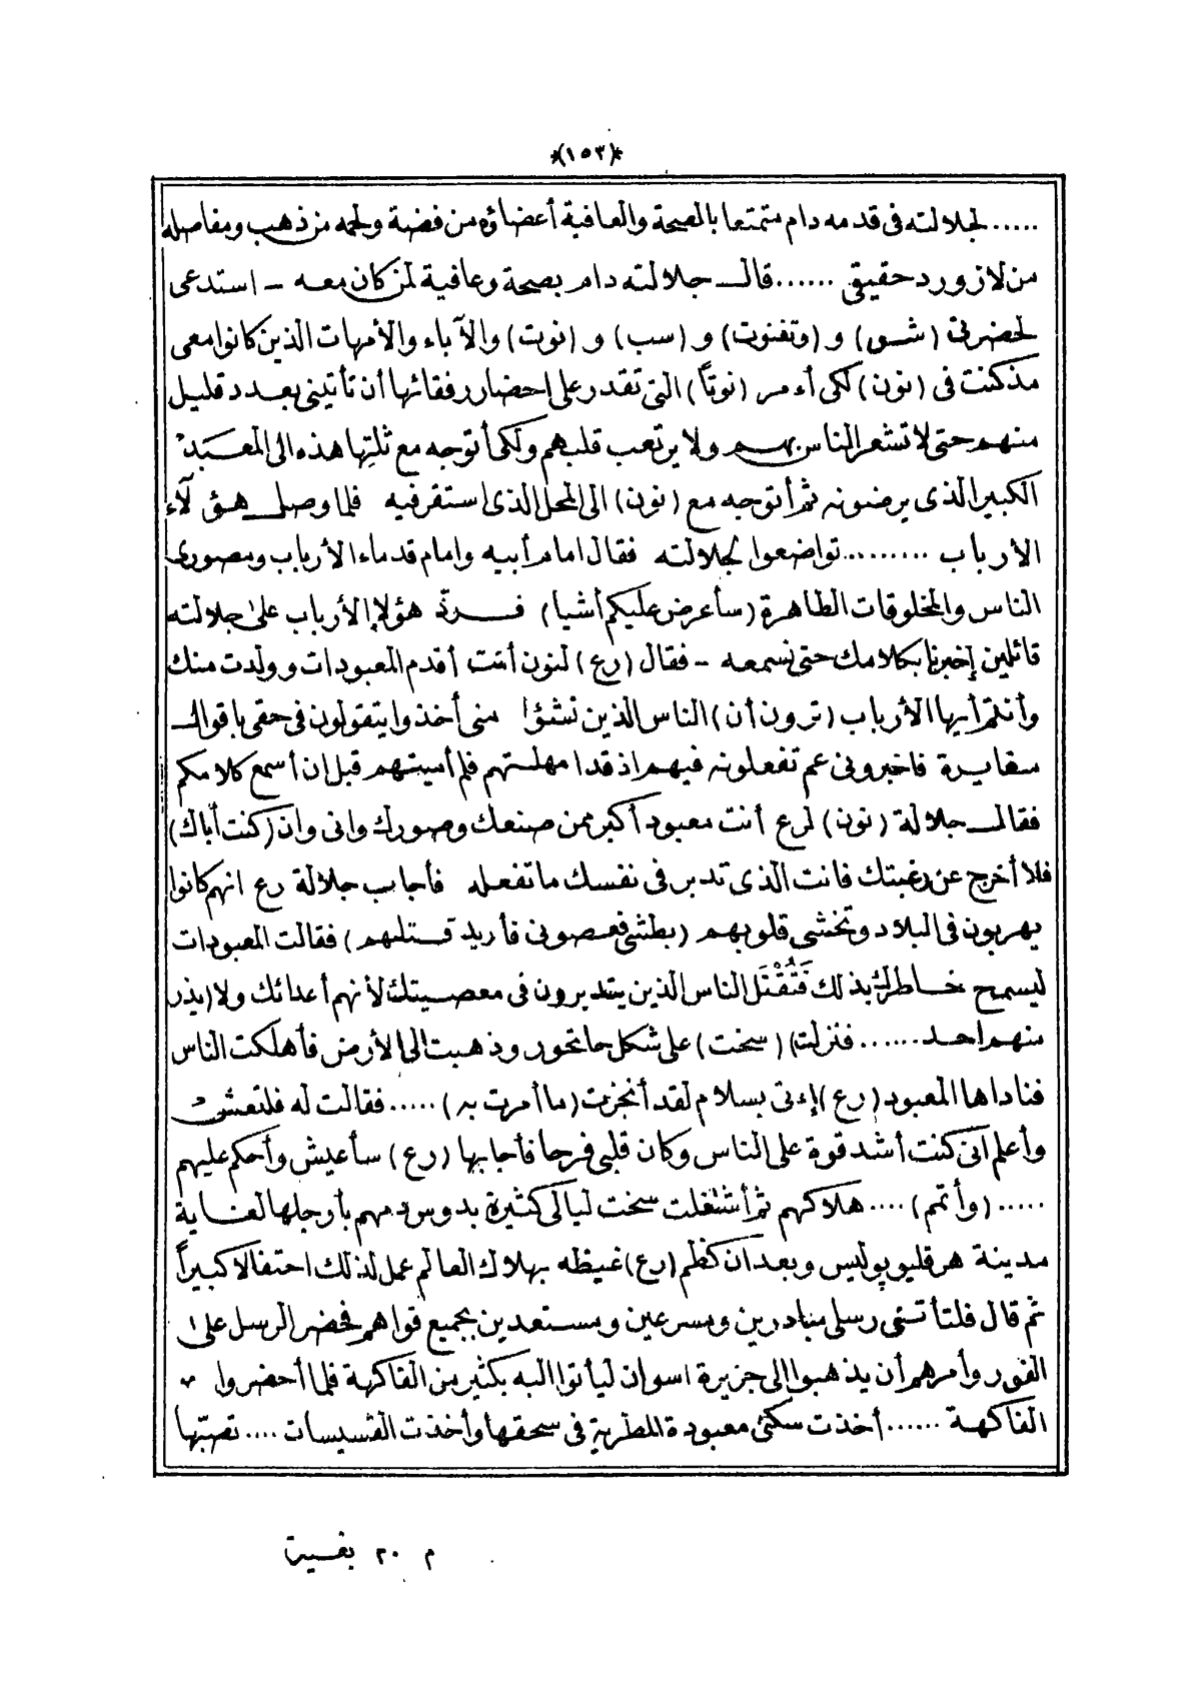 *(١٥٣)*
..... لجلالته فى قدمه دام متمتعا بالصحة والعافية أعضاؤه من فضة ولحمه من ذهب ومفاصله
من لازورد حقيقى ...... قال جلالته دام بصحة وعافية لمن كان معه - استدعى
لحضرتى (شو) و (وتفنوت) و (سب) و (نوت) والآباء والأمهات الذين كانوا معى
مذ كنت فى (نون) لكى أءمر (نوتاً) التى تقدر على احضار رفقائها أن تأتينى بعدد قليل
منهم حتى لا تشعر الناس بهم ولا يرتعب قلبهم ولكى أتوجه مع ثلتها هذه الى المعبد
الكبير الذى يرضونه ثم أتوجه مع (نون) الى المحل الذى استقر فيه فلما وصل هؤلآء
الأرباب ......... تواضعوا لجلالته فقال امام أبيه وامام قدماء الأرباب ومصورى
الناس والمخلوقات الطاهرة (سأعرض عليكم أشيا) فردّ هؤلاء الأرباب على جلالته
قائلين إخبرنا بكلامك حتى نسمعه - فقال (رع) لنون أنت أقدم المعبودات وولدت منك
وأنتم أيها الأرباب (ترون أن) الناس الذين نشؤا منى أخذوا يتقولون فى حقى باقوال
مغايرة فاخبرونى عم تفعلونه فيهم اذ قد امهلتهم فلم أميتهم قبل ان أسمع كلامكم
فقال جلالة (نون) لرع أنت معبود أكبر ممن صنعك وصورك وانى وان (كنت أباك)
فلا أخرج عن رغبتك فانت الذى تدبر فى نفسك ما تفعله فأجاب جلالة رع انهم كانوا
يهربون فى البلاد وتخشى قلوبهم (بطشى فعصونى فأريد قتلهم) فقالت المعبودات
ليسمح خاطرك بذلك فَتُقْتَل الناس الذين يتدبرون فى معصيتك لأنهم أعدائك ولا (يذر
منهم احد ...... فنزلت) (سخت) على شكل حاتحور وذهبت الى الأرض فأهلكت الناس
فناداها المعبود (رع) إءتى بسلام لقد أنجزت (ما أمرت به) ..... فقالت له فلتعش
وأعلم آنى كنت أشد قوة على الناس وكان قلبى فرحا فأجابها (رع) سأعيش وأحكم عليهم
..... (وأتمم) .... هلاكهم ثم أشتغلت سخت ليالى كثيرة بدوس دمهم بأرجلها لغاية
مدينة هرقليوپوليس وبعد ان كظم (رع) غيظه بهلاك العالم عمل لذلك احتفالا كبيراً
ثم قال فلتأتنى رسلى مبادرين ومسرعين ومستعدين بجميع قواهم فحضر الرسل على ١
الفور وأمرهم أن يذهبوا الى جزيرة اسوان ليأتوا اليه بكثير من الفاكهة فلما أحضروا
الفاكهة ...... أخذت سكتى معبودة المطرية فى سحقها وأخذت القسيسات .... تصبّها
م ٢٠ بغية